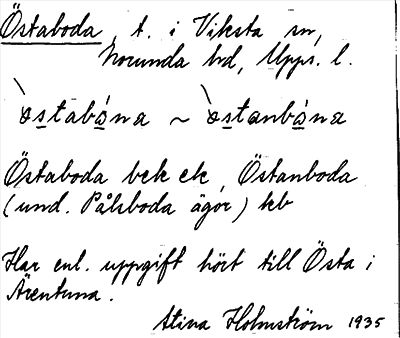 Östaboda, t. i Viksta sn,
Norunda hd, Upps. l.
`östabóna ~ `östanbóna
Östaboda bek ek, Östanboda
(und. Pålsboda ägor) kb
Har enl. uppgift hört till Östa i
Ärentuna.
Stina Holmström 1935